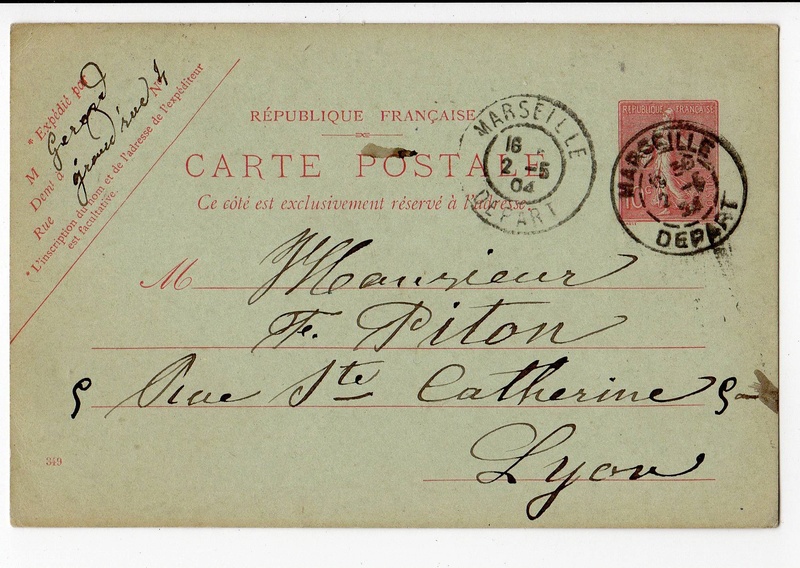 * Expédié par
M Gerard
Demt à
Rue grand rue N° 4
* L'inscription du nom et de l'adresse de l'expéditeur
est facultative.
RÉPUBLIQUE FRANÇAISE
CARTE POSTALE
Ce côté est exclusivement réservé à l'adresse.
MARSEILLE
16
2 -5
04
DEPART
REPUBLIQUE FRANÇAISE
10
MARSEILLE
DEPART
M Monsieur
F. Piton
9 Rue Ste Catherine 9
Lyon
349